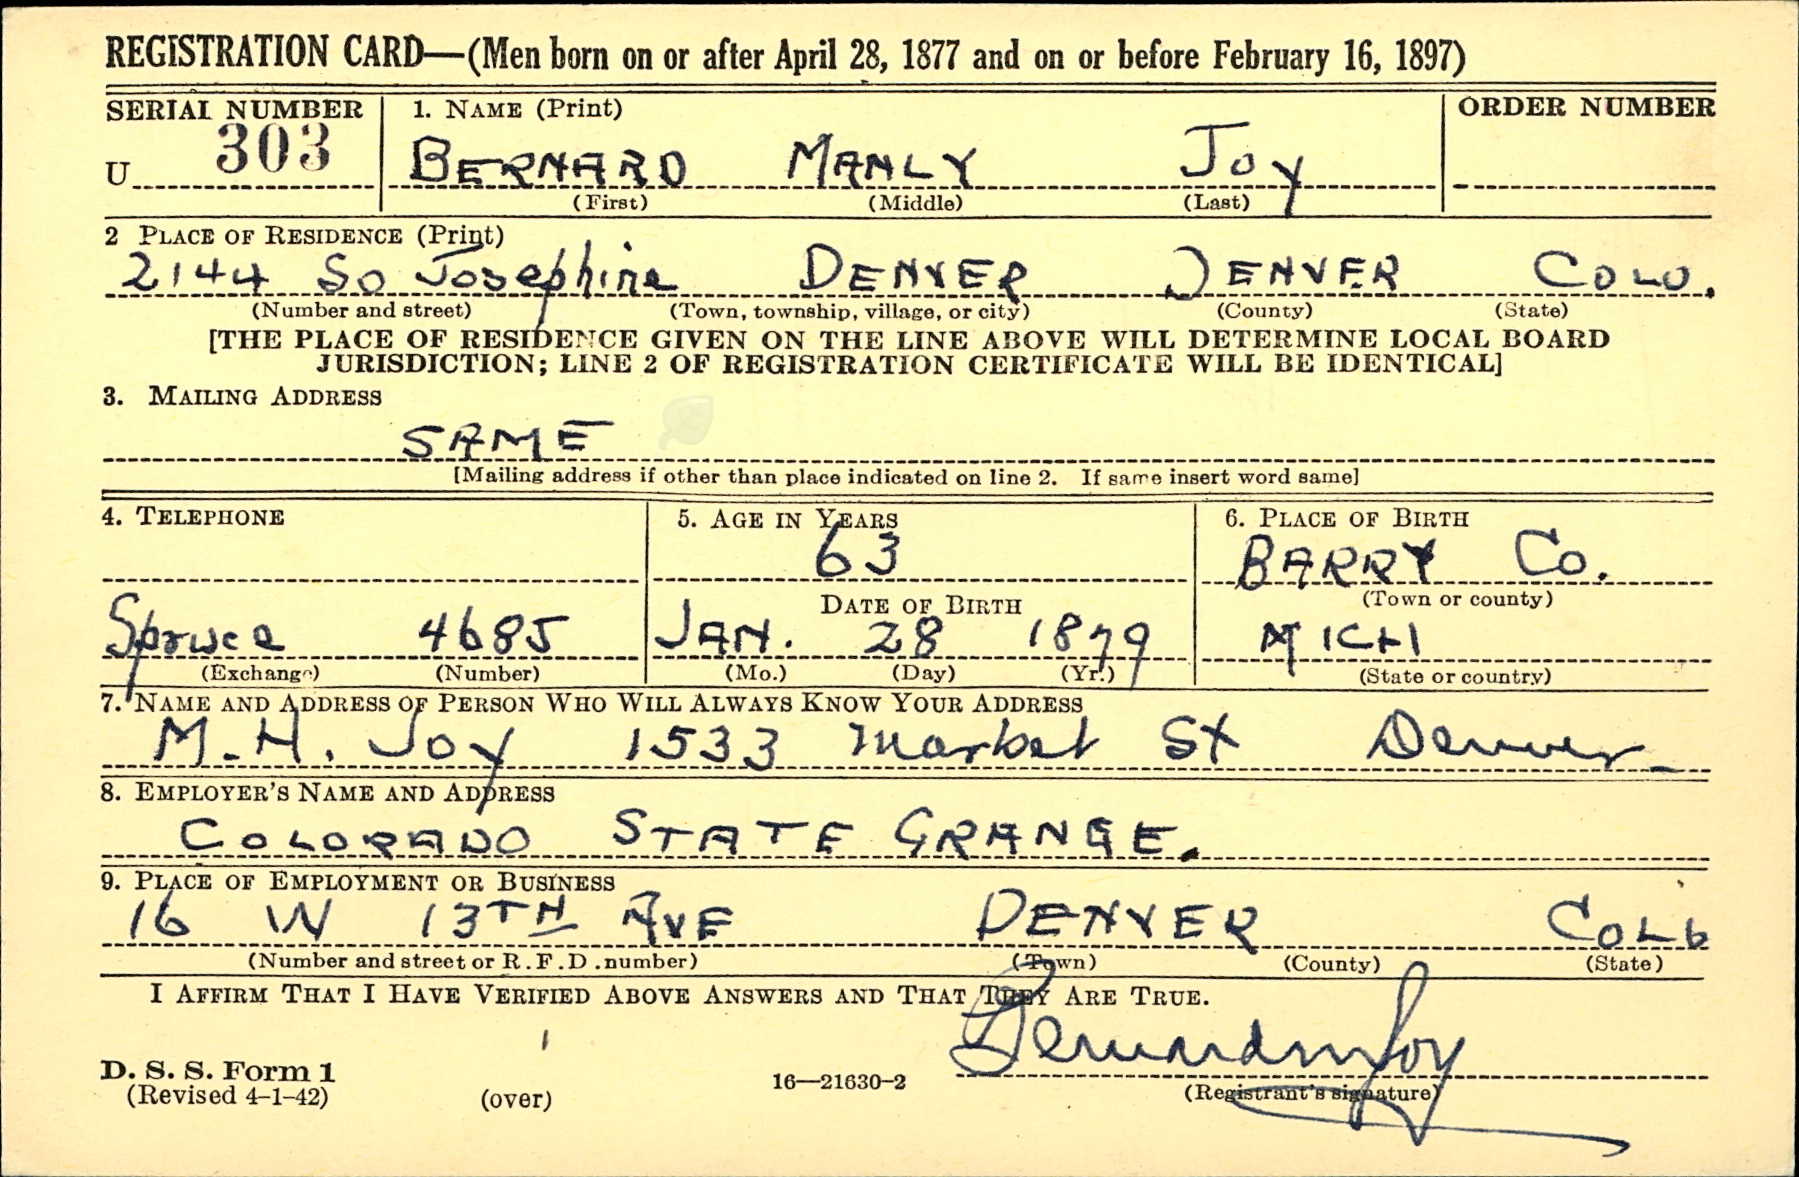 REGISTRATION CARD—(Men born on or after April 28, 1877 and on or before February 16, 1897)
SERIAL NUMBER 1. NAME (Print) ORDER NUMBER
U 303 BERNARD MANLY JOY
(First) (Middle) (Last)
2 PLACE OF RESIDENCE (Print)
2144 So Josephine DENVER DENVER COLO.
(Number and street) (Town, township, village, or city) (County) (State)
[THE PLACE OF RESIDENCE GIVEN ON THE LINE ABOVE WILL DETERMINE LOCAL BOARD
JURISDICTION; LINE 2 OF REGISTRATION CERTIFICATE WILL BE IDENTICAL]
3. MAILING ADDRESS
SAME
[Mailing address if other than place indicated on line 2. If same insert word same]
4. TELEPHONE 5. AGE IN YEARS 6. PLACE OF BIRTH
63 BARRY Co.
DATE OF BIRTH (Town or county)
Spruce 4685 JAN. 28 1879 MICH
(Exchange) (Number) (Mo.) (Day) (Yr.) (State or country)
7. NAME AND ADDRESS OF PERSON WHO WILL ALWAYS KNOW YOUR ADDRESS
M. H. Joy 1533 Market St Denver
8. EMPLOYER'S NAME AND ADDRESS
COLORADO STATE GRANGE.
9. PLACE OF EMPLOYMENT OR BUSINESS
16 W 13TH AVE DENVER COLO
(Number and street or R. F. D. number) (Town) (County) (State)
I AFFIRM THAT I HAVE VERIFIED ABOVE ANSWERS AND THAT THEY ARE TRUE.
Bernard M Joy
D. S. S. Form 1
(Revised 4-1-42) (over) 16—21630-2 (Registrant's signature)